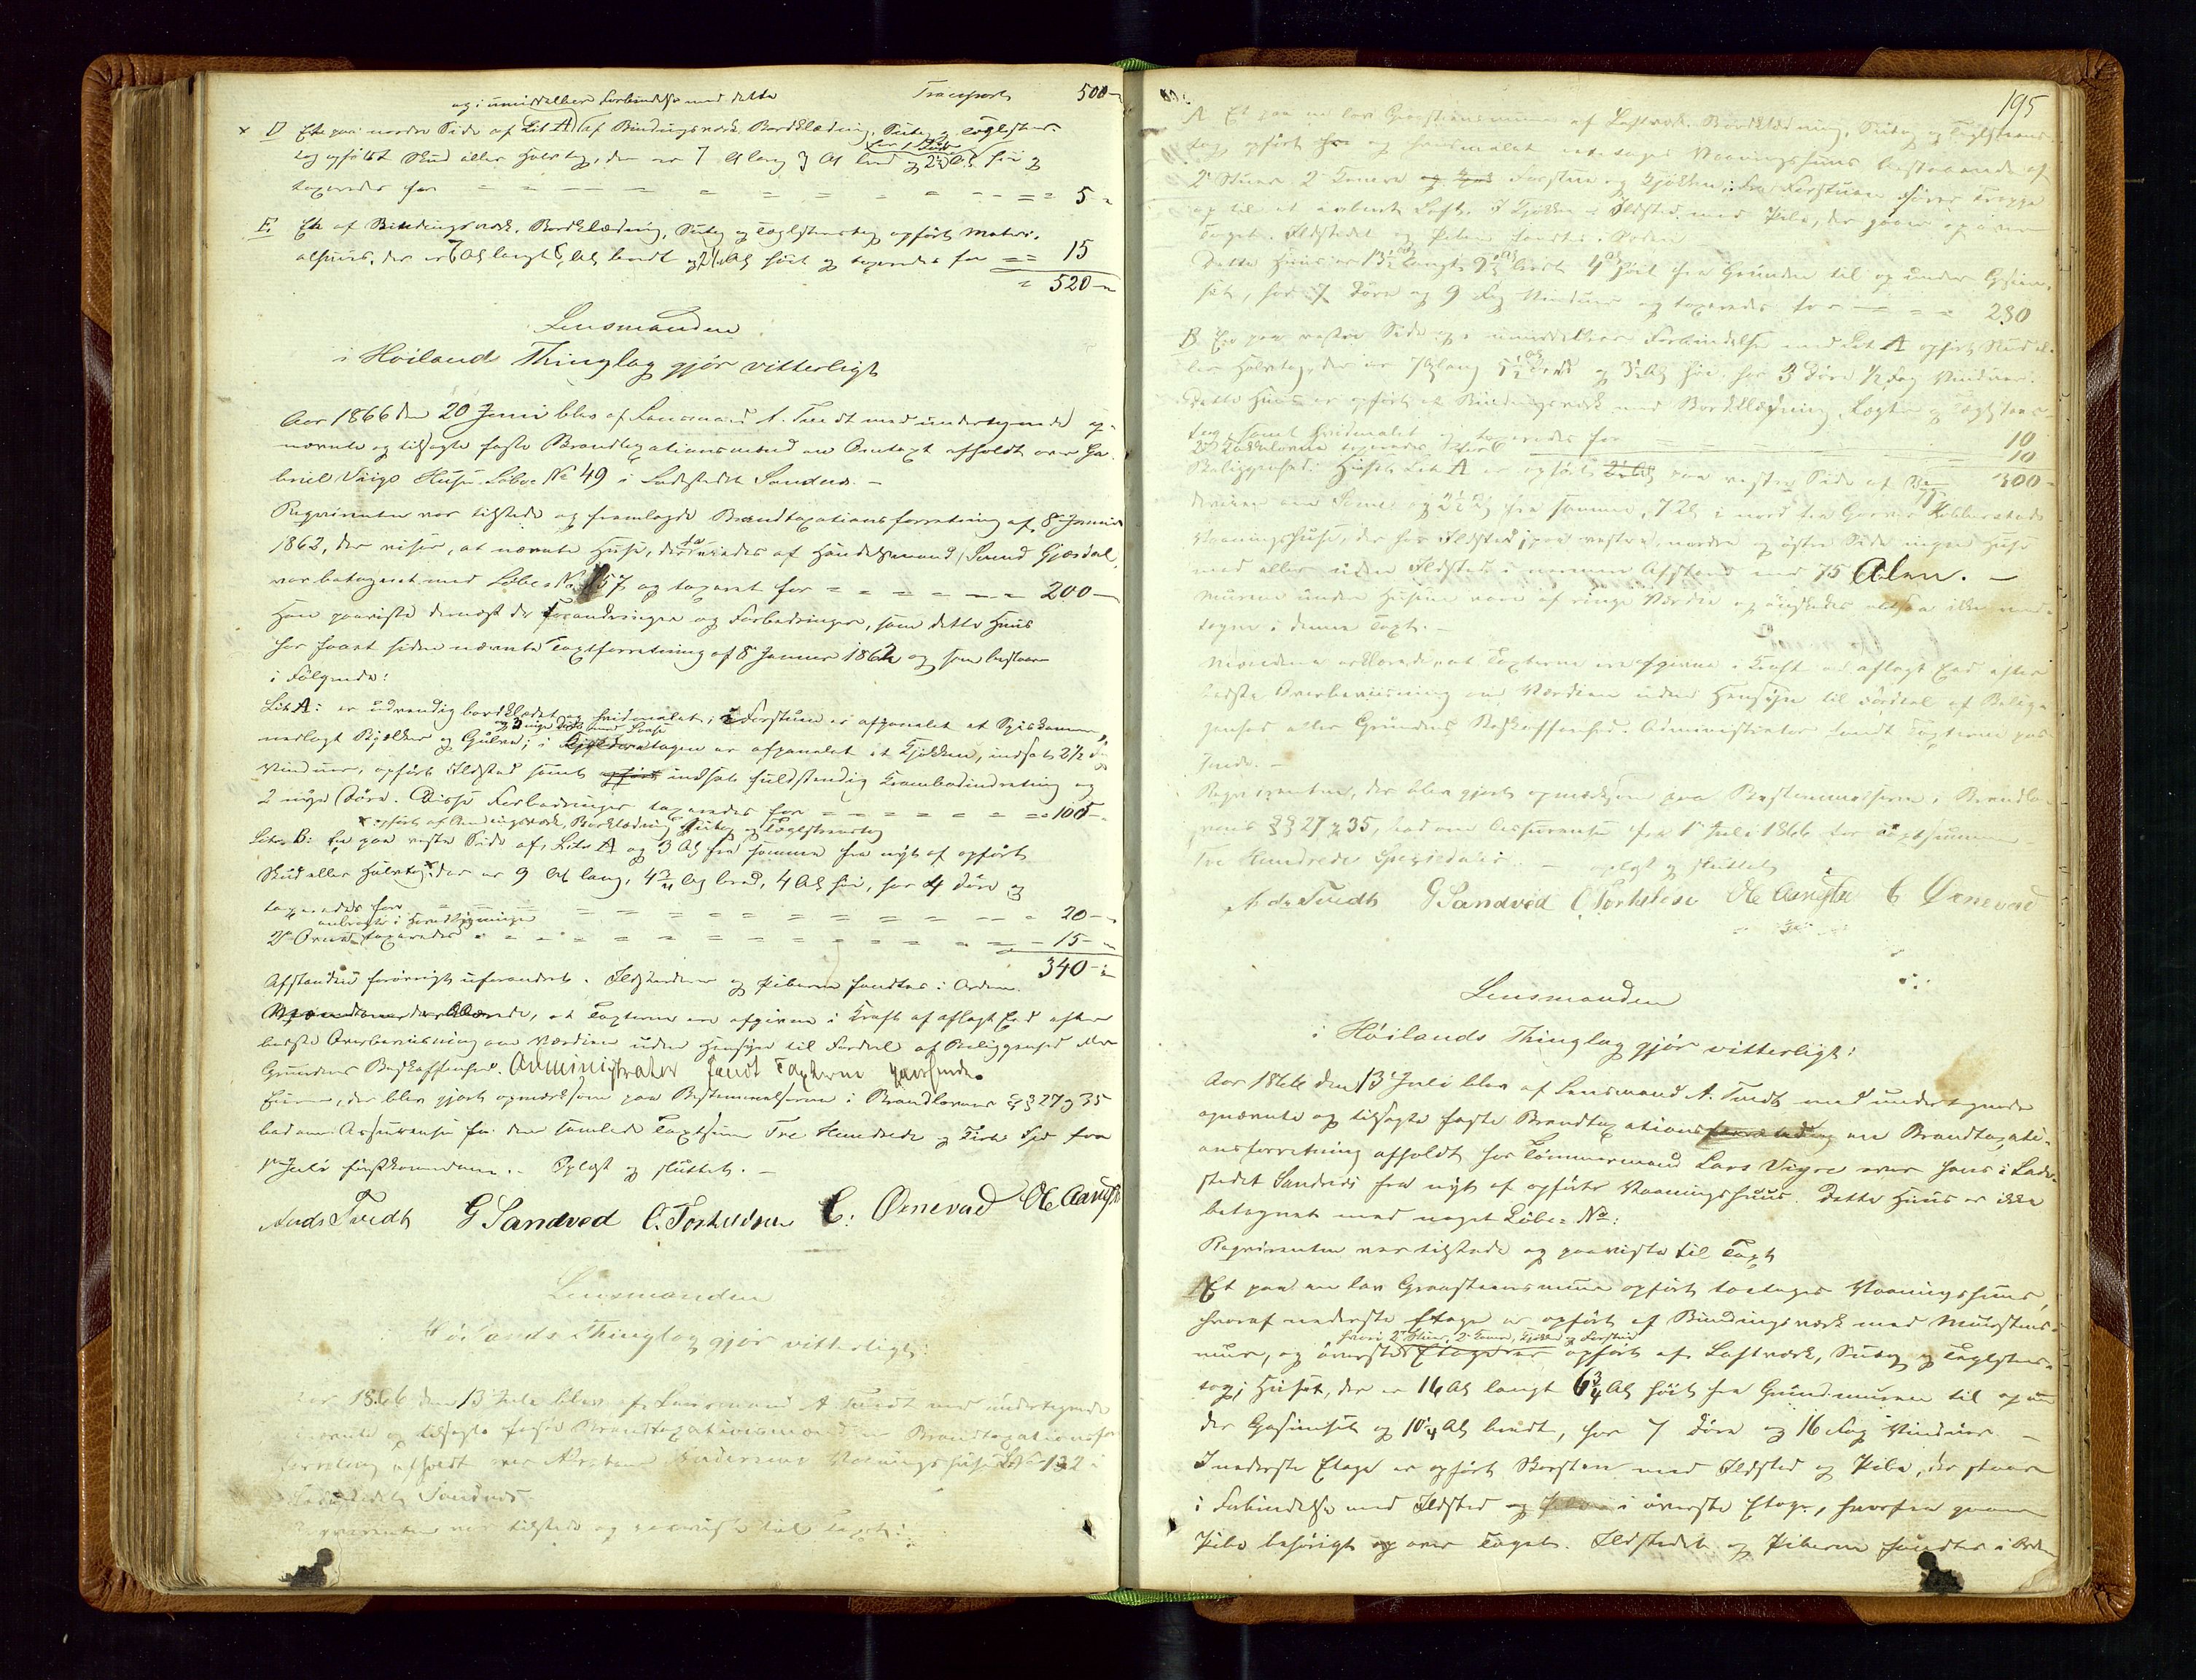 og i umiddelbar Forbindelse med dette Transport 500 -
x D Et paa nordre Side af Lit A af Bindingsværk, Bordklædning, Sutag og Taglsteens-
tag opført Skud eller Halvtag, der er 7 Al lang 3 Al bred og 2½ Al høi og
har 1 Dør
taxeredes for 5 -
E. Et af Bindingsværk, Bordklædning, Sutag og Taglsteenstag opført Materi-
alhuus, der er Al langt Al bredt og 2½ Al høit og taxeredes for 15
520 -
Lensmanden
i Høilands Thinglag gjør vitterligt
Aar 1866 den 20 Juni blev af Lensmand A. Tvedt med undertegnede op-
nævnte og tilsagte faste Brandtaxationsmænd en Omtaxt afholdt over Ga-
briel Vaigs Huse Løbe No 49 i Ladestedet Sandnæs. -
Reqvirenten var tilstede og fremlagde Brandtaxationsforretning af 8 Januar
1862, der viser, at nævnte Huse, der da eiedes af Handelsmand Svend Gjesdal,
var betegnet med Løbe No 57 og taxeret for 200 -
Han paaviste dernæst de Forandringer og Forbedringer, som dette Huus
har faaet siden nævnte Taxtforretning af 8 Januar 1862 og som bestaar
i Følgende:
Lit A: er udvendig bordklædet og hvidmalet; i Forstuen er afpanelet et Spiskammer,
nedlagt Bjelker og Gulve; i tagen er afpanelet et Kjøkken, indsat 2½ Fag
Vinduer, opført Ildsted samt opført indsat fuldstændig Krambodindretning og
2 nye Døre. Disse Forbedringer taxeredes for 105 -
x opført af Bindingsværk, Bordklædning Sutag og Taglsteenstag
Litr. B: En paa vestre Side af Litr A og 3 Al fra samme fra nyt af opført
Skud eller Halvtag x der er 9 Al lang, 4¾ Al bred, 4 Al høi, har 4 Døre og
taxeredes for 20 -
anbragte i Hovedbygningen
2de Ovne taxeredes 15 -
340 -
Afstanden forøvrigt uforandret. Ildstederne og Piberne fandtes i Orden.
Mændene erklærede, at Taxterne ere afgivne i Kraft af aflagt Eed efter
bedste Overbeviisning om Værdien uden Hensyn til Fordeel af Beliggenhed eller
Grundens Beskaffenhed. Administrator fandt Taxterne passende.
Eieren, der blev gjort opmærksom paa Bestemmelserne i Brandlovens §§ 27 og 35
bad om Assurance for den samlede Taxtsum Tre Hundrede og Firti Spd fra
1ste Juli førstkommende. - Oplæst og sluttet. -
Ands Tvedt G Sandved C. Torkildsen C. Ørnevad
Lensmanden
i Høilands Thinglag gjør vitterligt:
Aar 1866 den 13 Juli blev af Lensmand A Tvedt med undertegnede
opnævnte og tilsagte faste Brandtaxationsmænd en Brandtaxationsfor-
retning afholdt over Andersens Vaaningshuse Lb No 132 i
Ladestedet Sandnæs.
Reqvirenten var tilstede og paaviste til Taxt:
195
A Et paa en lav Graasteensmuur af Laftværk, Bordklædning, Sutag og Taglsteens-
tag, opført og hvidmalet eetetages Vaaningshuus bestaaende af
2de Stuer, 2de Kamere og Forstue og Kjøkken; fra Forstuen fører Trappe
op til et indredet Loft. I Kjøkken 1 Ildsted med Pibe, der gaaer op over
Taget. Ildstedet og Piben fandtes i Orden.
Dette Huus er 13½ Al langt, 9½ Al bredt 4 Al høit fra Grunden til op under Gesim-
set, har 7 Døre og 9 Fag Vinduer og taxeredes for 280
B. En paa vestre Side og i umiddelbar Forbindelse med Lit A opført Skud el-
ler Halvtag, der er 7 Al lang 5½ Al bred og 3½ Al høi, har 3 Døre ½ Fag Vinduer.
Dette Huus er opført af Bindingsværk med Bordklædning, Lægter og Taglsteens-
tag, samt hvidmalet og taxeredes for 10
2de Kakkelovne taxeredes for 10
300 -
Beliggenhed: Huset Lit A er opført paa vestre Side af
Vaaningshuse, der har Ildsted; paa vestre, nordre og østre Side ingen Huse
med eller uden Ildsted i nærmere Afstand end 75 Alen. -
Murene under Husene vare af ringe Værdie og ønskedes altsaa ikke med-
tagne i denne Taxt. -
Mændene erklærede, at Taxterne ere afgivne i Kraft af aflagt Eed efter
bedste Overbeviisning om Værdien uden Hensyn til Fordeel af Belig-
genhed eller Grundens Beskaffenhed. Administrator fandt Taxterne pas-
sende. -
Reqvirenten, der blev gjort opmærksom paa Bestemmelserne i Brandlo-
vens §§ 27 og 35, bad om Assurance fra 1ste Juli 1866 for Taxtsummen
Tre Hundrede Speciedaler. - oplæst og sluttet
Ands Tvedt G Sandved C Torkildsen C Ørnevad
Lensmanden
i Høilands Thinglag gjør vitterligt:
Aar 1866 den 13 Juli blev af Lensmand A. Tvedt med undertegnede
opnævnte og tilsagte faste Brandtaxations en Brandtaxati-
onsforretning afholdt hos Tømmermand Lars Vigre over hans i Lade-
stedet Sandnæs fra nyt af opførte Vaaningshuus. Dette Huus er ikke
betegnet med noget Løbe No:
Reqvirenten var tilstede og paaviste til Taxt
A Et paa en lav Graasteensmuur opført toetages Vaaningshuus,
hvoraf nederste Etage er opført af Bindingsværk med Muursteens-
hvori 2de Stuer, 2de Kamre, Kjøkken og Forstue
muur, og øverste Etage er opført af Laftværk, Sutag og Taglsteens-
tag; Huset, der er 16 Al langt 6¾ Al høit fra Grundmuren til op un-
der Gesimset og 10¼ Al bredt, har 7 Døre og 16 Fag Vinduer. -
I nederste Etage er opført Skorsteen med Ildsted og Pibe, der staaer
i Forbindelse med Ildsted og i øverste Etage, hvorfra gaaer
Pibe behørigt op over Taget. Ildstedet og Piberne fandtes i Orden